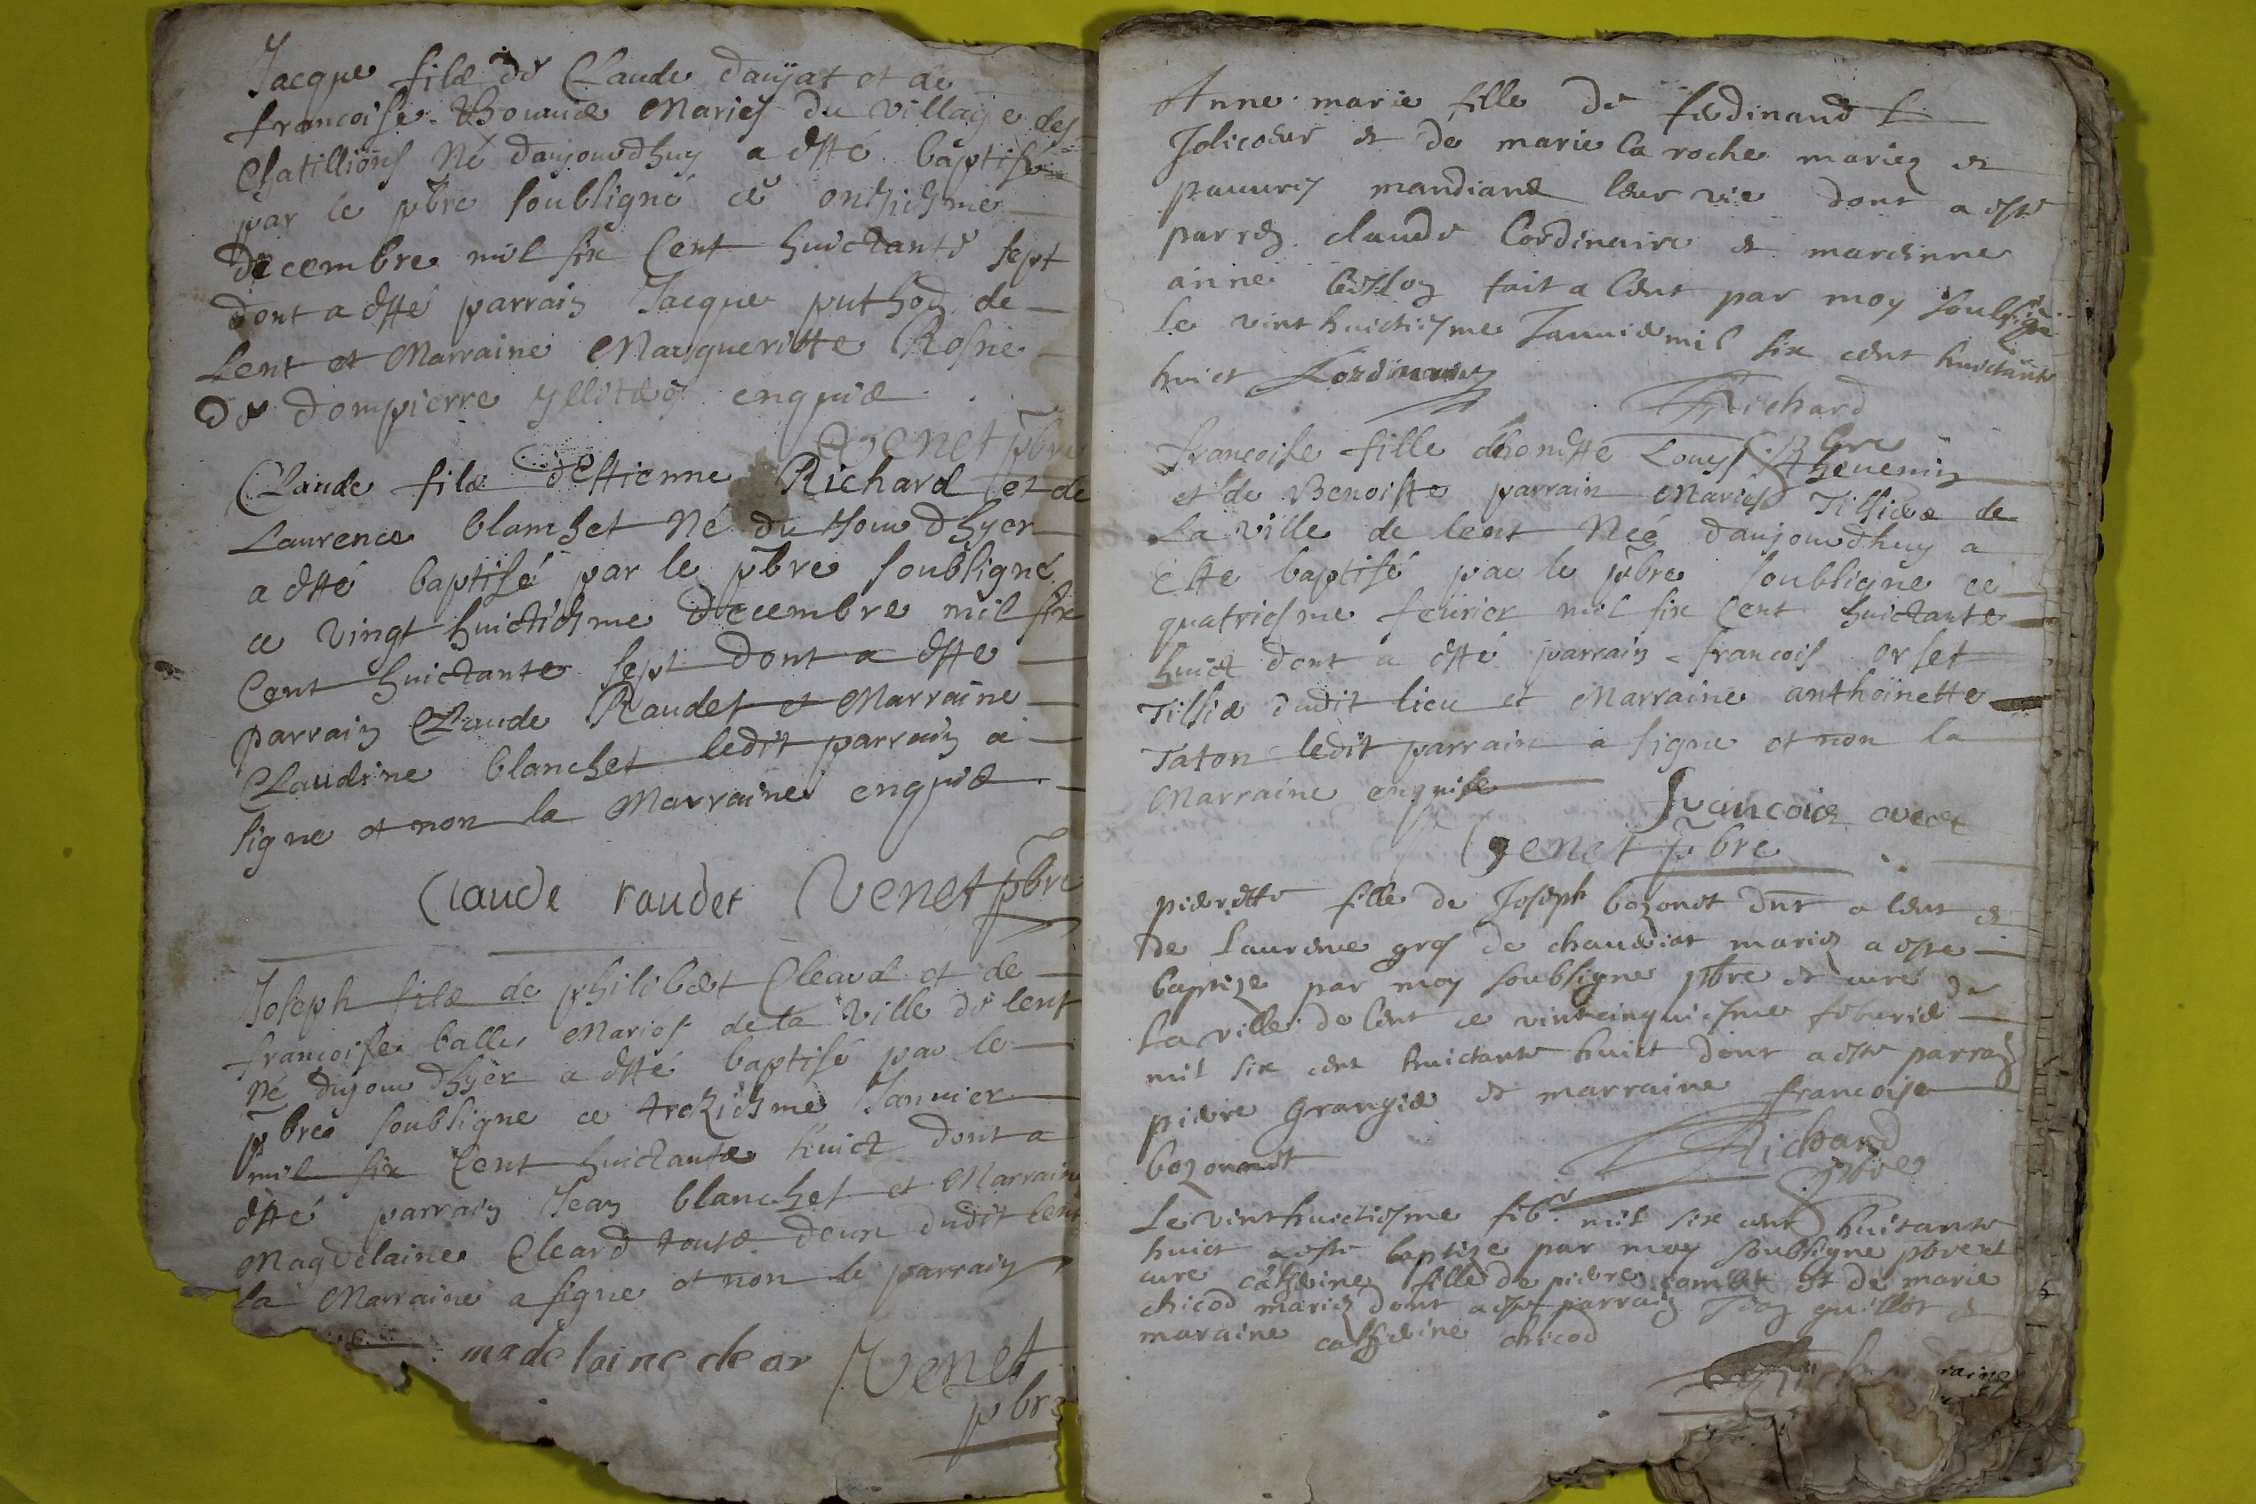 Jacque filz de Claude daujat et de
francoise Mariés du village des
Chatillions Né daujourdhuy a esté baptisé
par le pbre soubsigné ce onziesme
decembre mil six Cent huictante sept
dont a esté parrain Jacque puthod de
Lent et Marraine Margueritte Rosne
de dompierre yllitéz enquis
Venet pbre
Claude filz d'Estienne Richard et de
Laurence blanchet Né du jourdhyer
a esté baptisé par le pbre soubsigné
ce vingt huictiesme decembre mil six
Cent huictante sept dont a esté
parrain Claude Raudet et Marraine
Claudine blanchet ledit parrain a
signe et non la Marraine enquise
Claude raudet Venet pbre
Joseph filz de philibert Cleard et de
françoise balle Mariés de la Ville de lent
Né dujourdhyer a esté baptisé par le
pbre soubsigne ce treziesme Janvier
mil six Cent huictante huict dont a
esté parrain Jean blanchet et Marraine
Magdelaine Cleard tous deux dudit lent
la Marraine a signe et non le parrain
madelaine clear Venet
pbre
Anne marie fille de ferdinand
Jolicoeur et de marie la roche mariez et
pauures mandiant leur vie dont a este
parrein claude Cordinaire et mareinne
anne fait a lent par moy soubsigné
le vint huictiesme Januier mil six cent huictante
huict
Richard
pbre
francoise fille dhoneste Louys Theuenin
et de Benoiste parrain Mariés Tissier de
La ville de lent Neé daujourdhuy a
Este baptisé par le pbre soubsigne ce
quatriesme feurier mil six Cent huictante
huict dont a esté parrain francois orset
Tissier dudit lieu et Marraine anthoinette
Taton ledit parrain a signe et non la
Marraine enquise
francois
Venet pbre
pierrette fille de Joseph bozonet dnt a lent et
de Laurence gros de mariez a este
baptize par moy soubsigne pbre et curé de
la ville de lent ce vintcinquiesme feburier
mil six cent huictante huict dont a este parrain
pierre Grangier et marraine francoise
bozonnet
Richard
pbre
Le vinthuictiesme feb. mil six cent huitante
huict a este baptize par moy soubsigne pbre et
cure catherine fille de pierre et de marie
chicod mariez dont a este parrain Jean guillot et
maraine catherine chicod